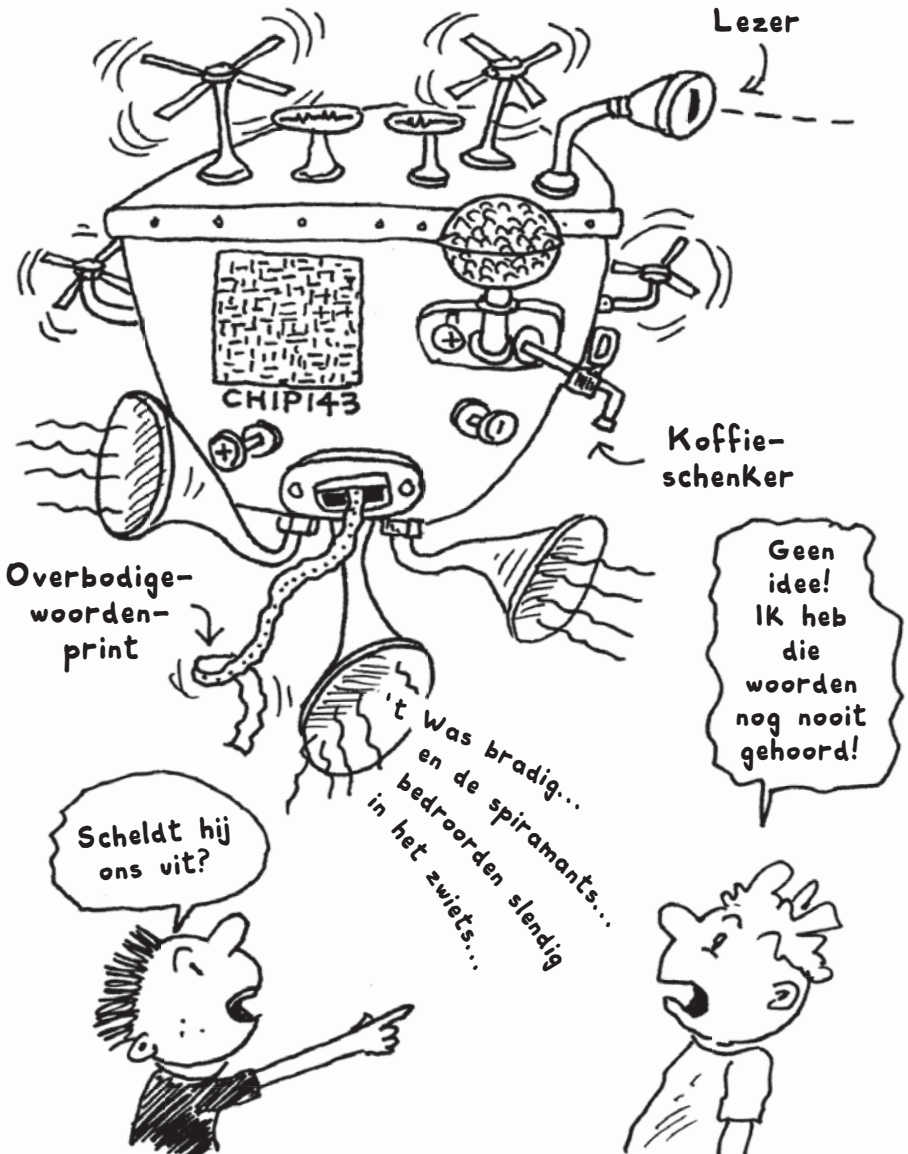 Lezer
CHIP143
Koffie-
schenker
Overbodige-
woorden-
print
Geen
idee!
Ik heb
die
woorden
nog nooit
gehoord!
't Was bradig...
en de spiramants...
bedroorden slendig
in het zwiets...
Scheldt hij
ons uit?